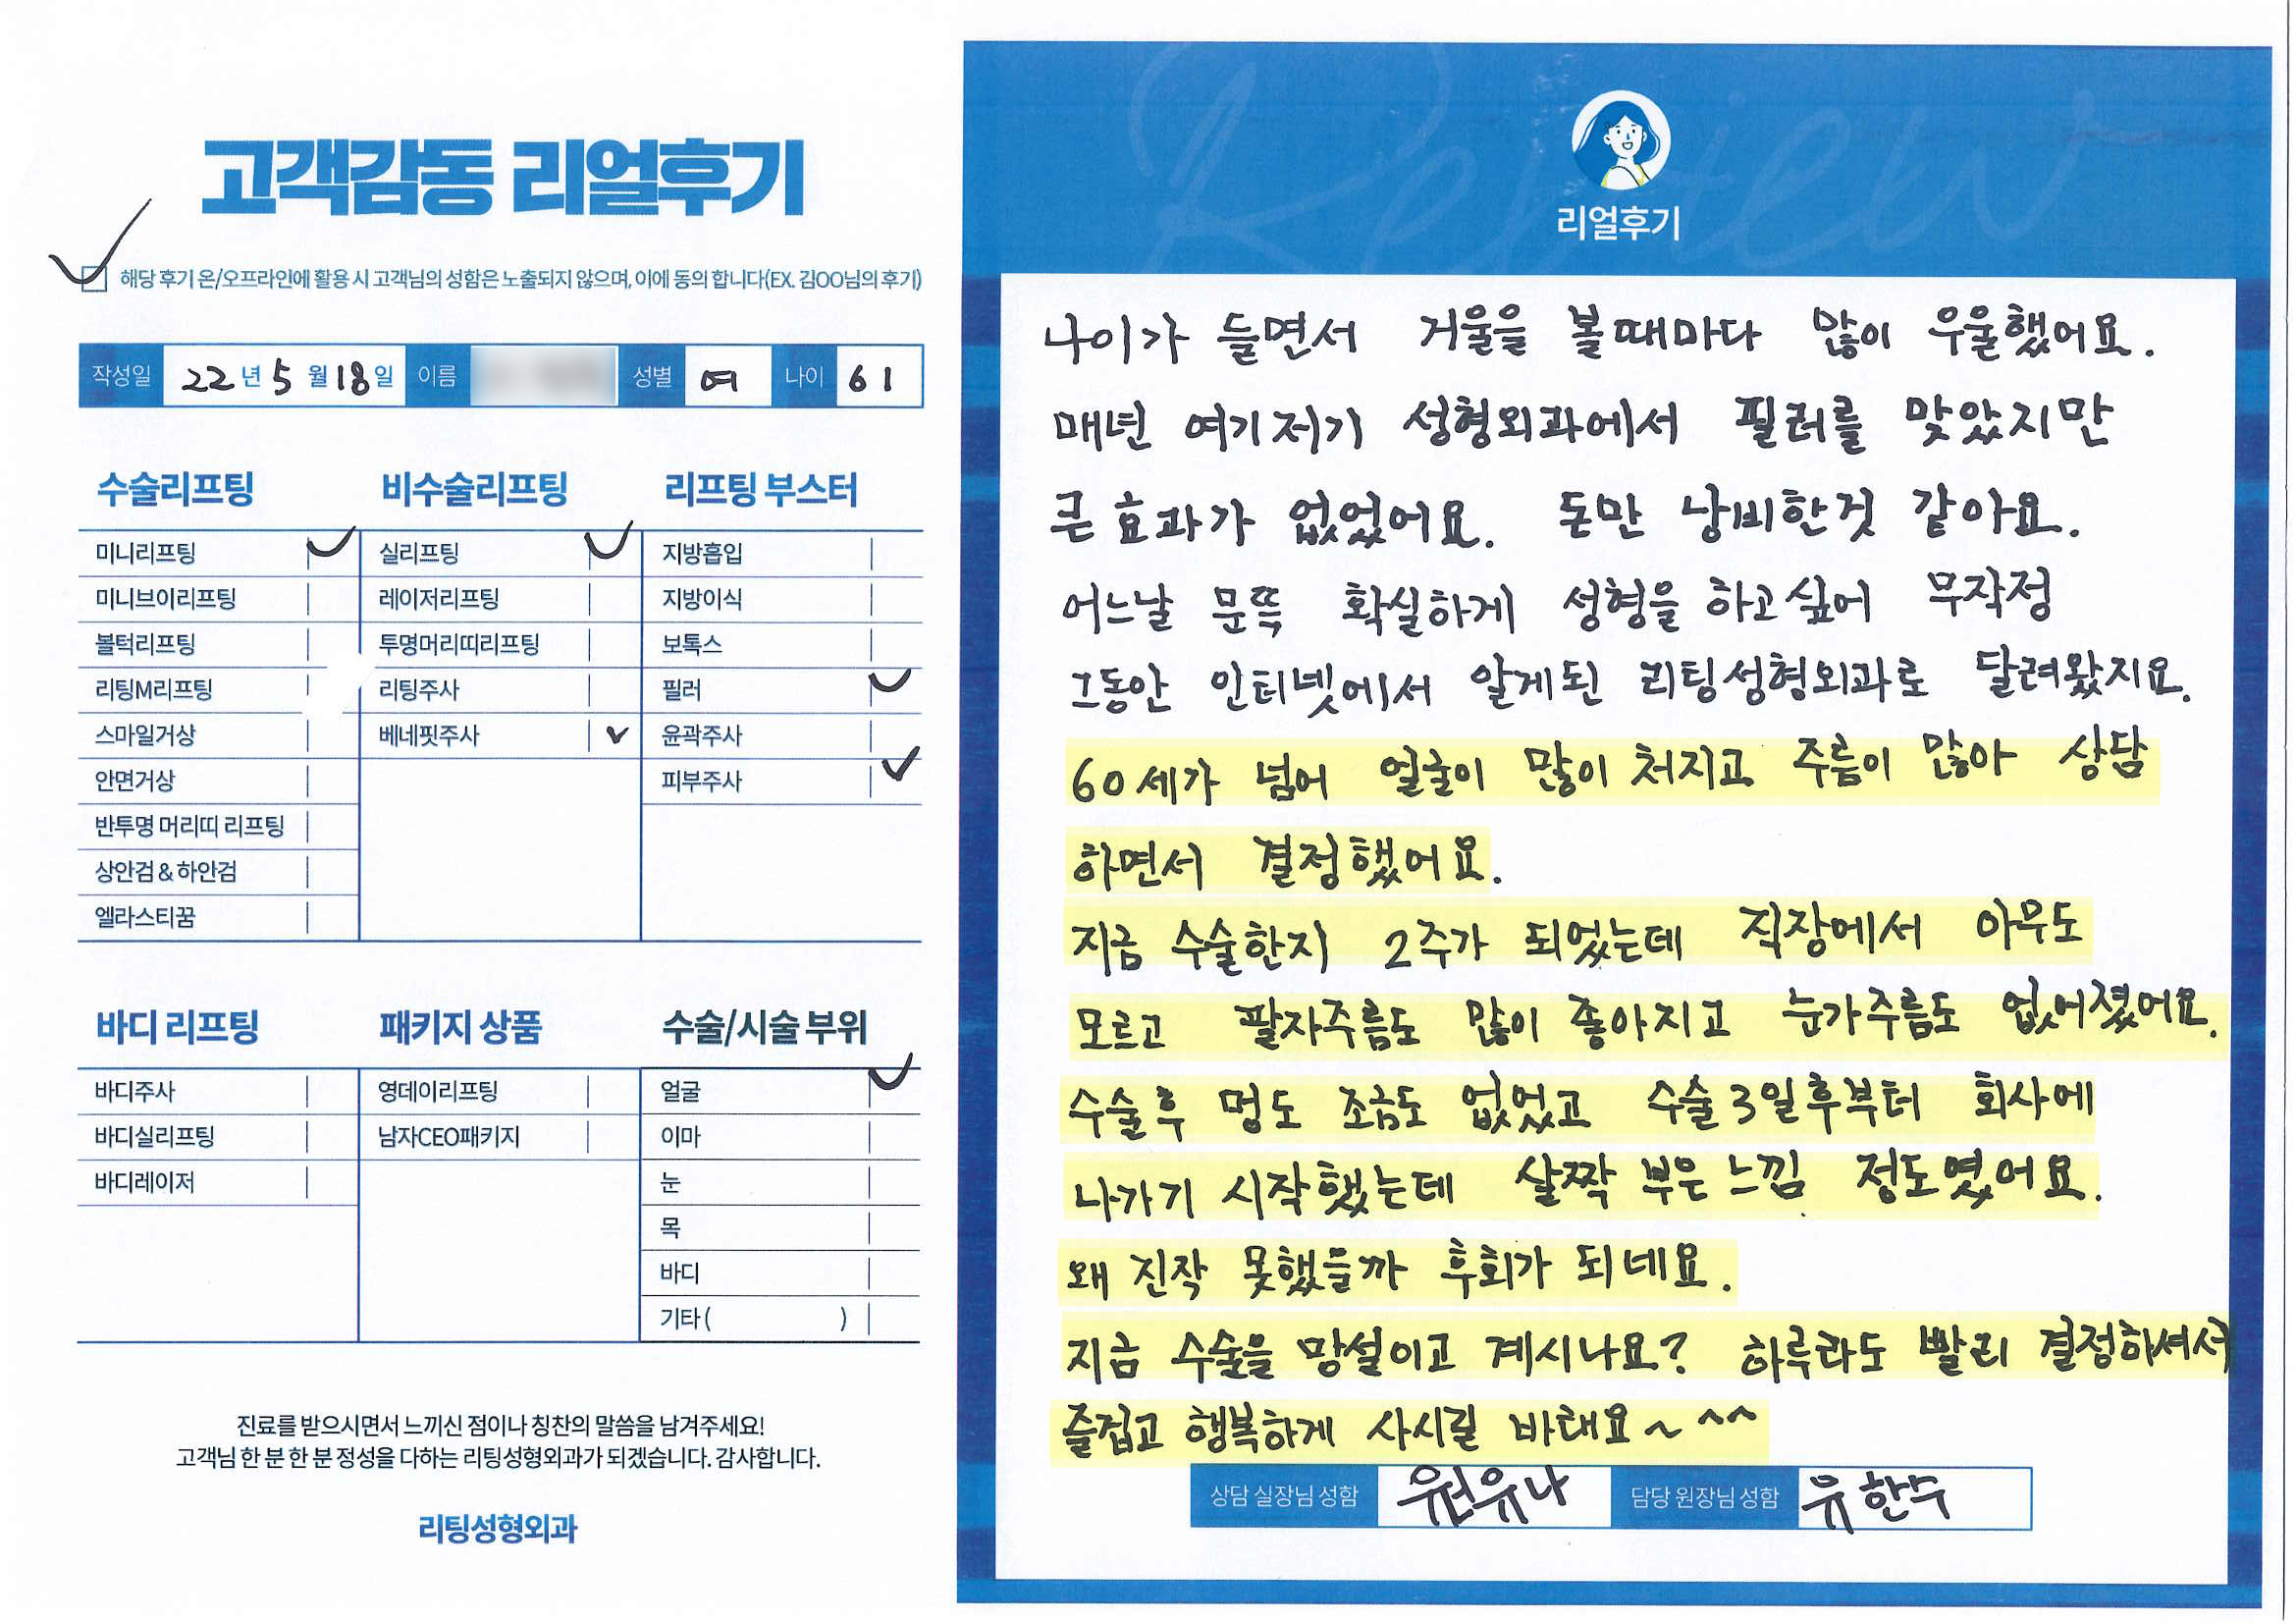 고객감동 리얼후기
해당 후기 온/오프라인에 활용 시 고객님의 성함은 노출되지 않으며, 이에 동의 합니다(EX. 김OO님의 후기)
작성일 22년 5월 18일 이름 성별 여 나이 61
수술리프팅
미니리프팅
미니브이리프팅
볼턱리프팅
리팅M리프팅
스마일거상
안면거상
반투명 머리띠 리프팅
상안검 & 하안검
엘라스티꿈
비수술리프팅
실리프팅
레이저리프팅
투명머리띠리프팅
리팅주사
베네핏주사
리프팅 부스터
지방흡입
지방이식
보톡스
필러
윤곽주사
피부주사
바디 리프팅
바디주사
바디실리프팅
바디레이저
패키지 상품
영데이리프팅
남자CEO패키지
수술/시술 부위
얼굴
이마
눈
목
바디
기타 ( )
진료를 받으시면서 느끼신 점이나 칭찬의 말씀을 남겨주세요!
고객님 한 분 한 분 정성을 다하는 리팅성형외과가 되겠습니다. 감사합니다.
리팅성형외과
Review
리얼후기
나이가 들면서 거울을 볼때마다 많이 우울했어요.
매년 여기저기 성형외과에서 필러를 맞았지만
큰 효과가 없었어요. 돈만 낭비한것 같아요.
어느날 문뜩 확실하게 성형을 하고싶어 무작정
그동안 인터넷에서 알게된 리팅성형외과로 달려왔지요.
60세가 넘어 얼굴이 많이 처지고 주름이 많아 상담
하면서 결정했어요.
지금 수술한지 2주가 되었는데 직장에서 아무도
모르고 팔자주름도 많이 좋아지고 눈가주름도 없어졌어요.
수술후 멍도 조금도 없었고 수술3일후부터 회사에
나가기 시작했는데 살짝 부은느낌 정도였어요.
왜 진작 못했을까 후회가 되네요.
지금 수술을 망설이고 계시나요? 하루라도 빨리 결정하셔서
즐겁고 행복하게 사시길 바래요~ ^^
상담 실장님 성함 원유나 담당 원장님 성함 유한수